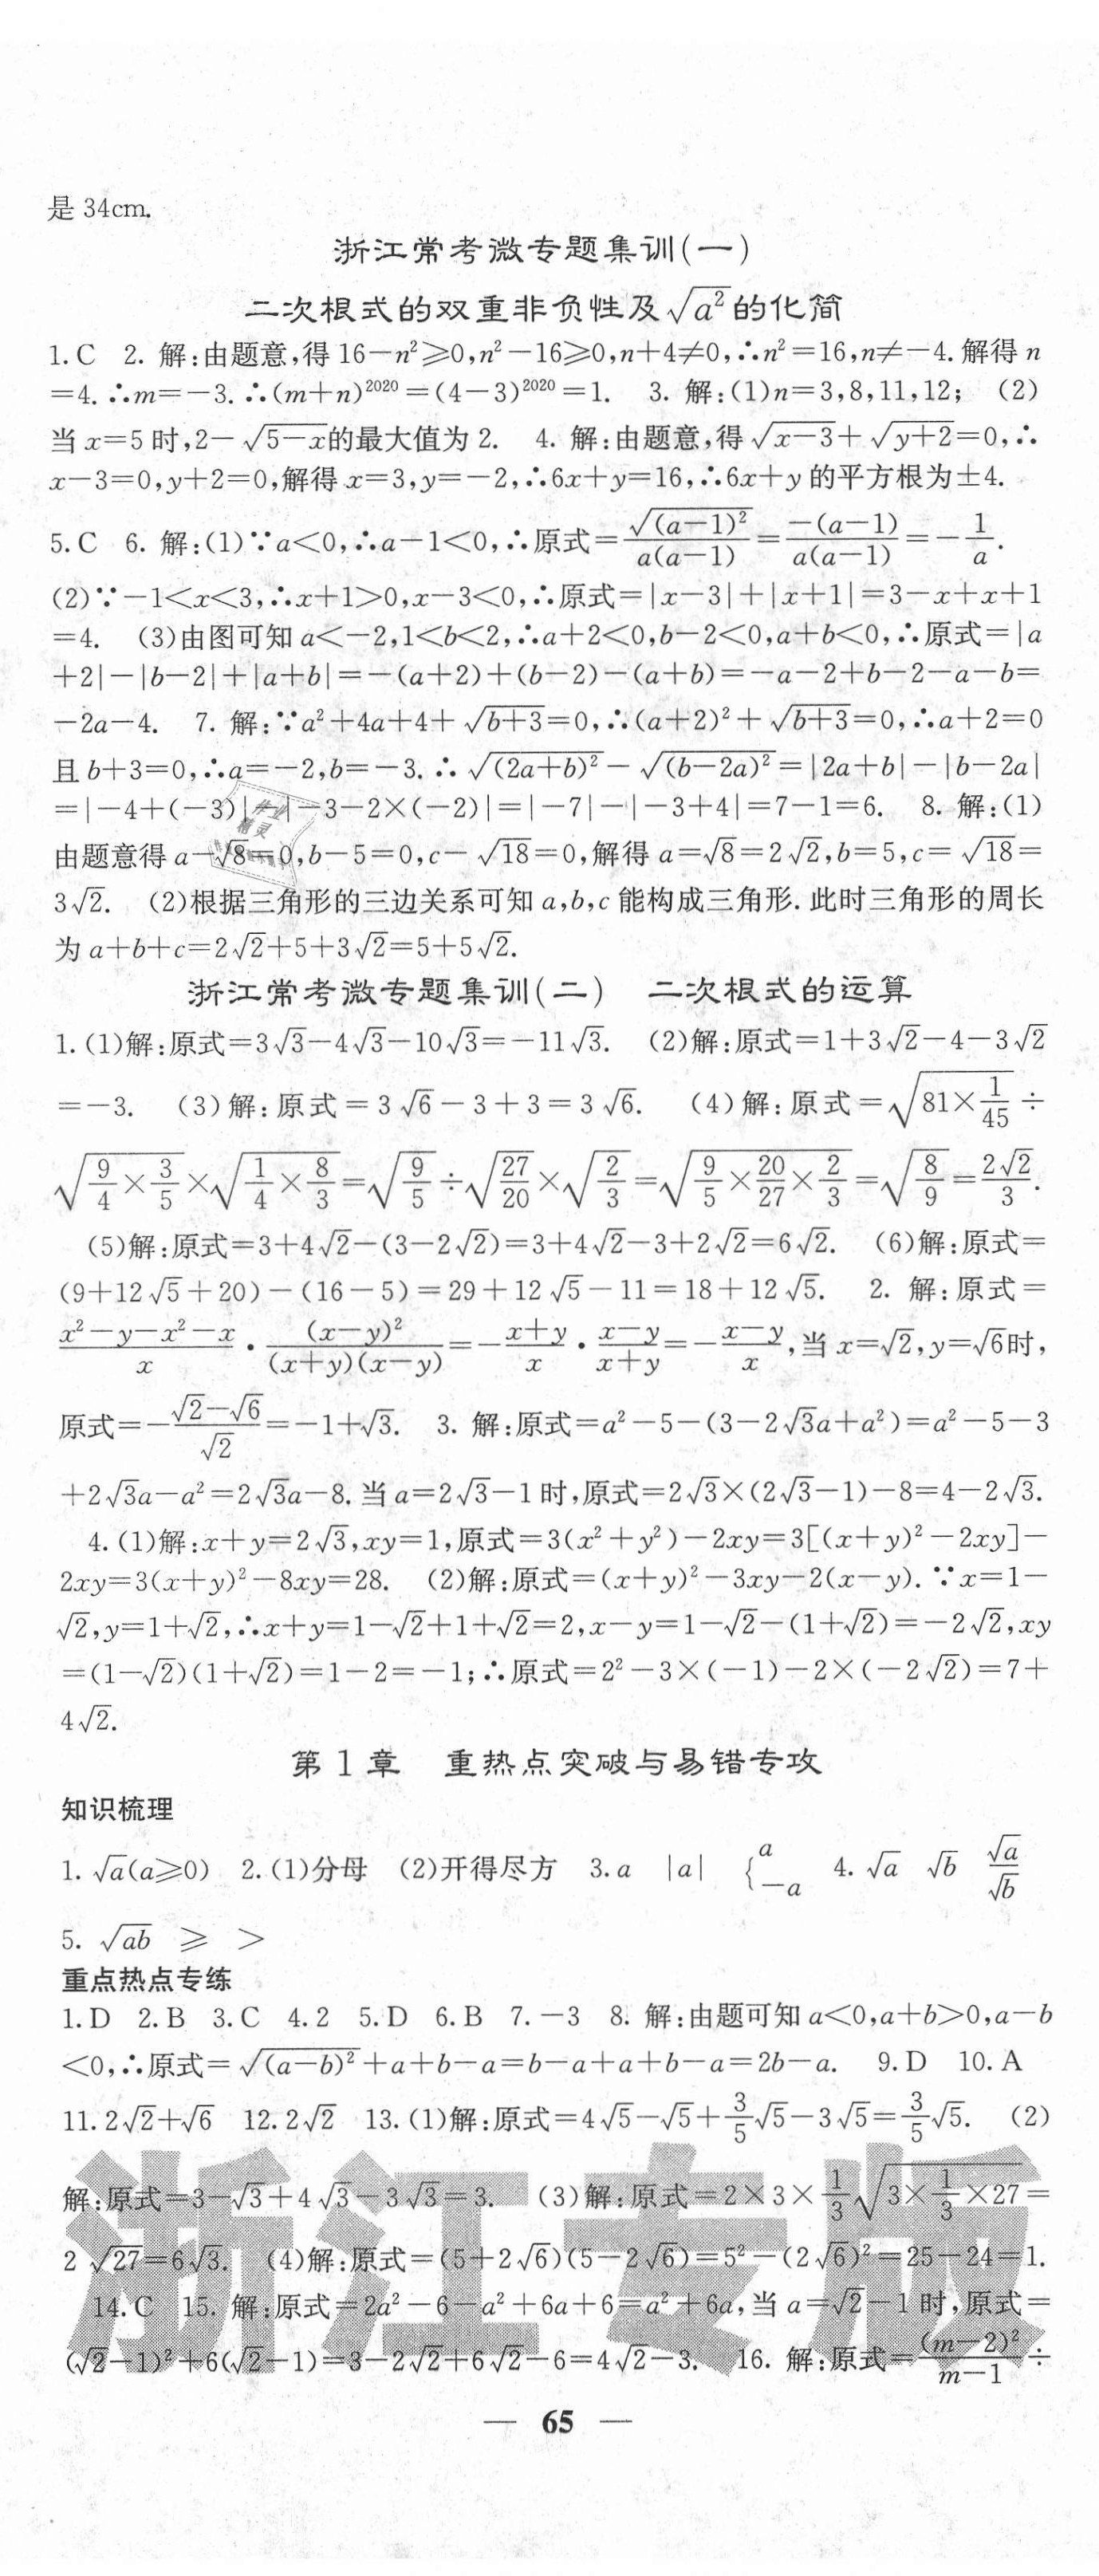 是 34cm.
浙江常考微专题集训(一)
二次根式的双重非负性及√(a²)的化简
1.C 2. 解:由题意,得 16－n²≥0,n²－16≥0,n＋4≠0,∴n²＝16,n≠－4. 解得 n
＝4. ∴m＝－3. ∴(m＋n)²⁰²⁰＝(4－3)²⁰²⁰＝1. 3. 解:(1)n＝3,8,11,12; (2)
当 x＝5 时,2－√(5－x)的最大值为 2. 4. 解:由题意,得√(x－3)＋√(y＋2)＝0,∴
x－3＝0,y＋2＝0,解得 x＝3,y＝－2,∴6x＋y＝16,∴6x＋y 的平方根为±4.
5.C 6. 解:(1)∵a＜0,∴a－1＜0,∴原式＝√((a－1)²)/(a(a－1))＝－(a－1)/(a(a－1))＝－1/a.
(2)∵－1＜x＜3,∴x＋1＞0,x－3＜0,∴原式＝|x－3|＋|x＋1|＝3－x＋x＋1
＝4. (3)由图可知 a＜－2,1＜b＜2,∴a＋2＜0,b－2＜0,a＋b＜0,∴原式＝|a
＋2|－|b－2|＋|a＋b|＝－(a＋2)＋(b－2)－(a＋b)＝－a－2＋b－2－a－b＝
－2a－4. 7. 解:∵a²＋4a＋4＋√(b＋3)＝0,∴(a＋2)²＋√(b＋3)＝0,∴a＋2＝0
且 b＋3＝0,∴a＝－2,b＝－3. ∴√((2a＋b)²)－√((b－2a)²)＝|2a＋b|－|b－2a|
＝|－4＋(－3)|－|－3－2×(－2)|＝|－7|－|－3＋4|＝7－1＝6. 8. 解:(1)
由题意得 a－√8＝0,b－5＝0,c－√18＝0,解得 a＝√8＝2√2,b＝5,c＝√18＝
3√2. (2)根据三角形的三边关系可知 a,b,c 能构成三角形. 此时三角形的周长
为 a＋b＋c＝2√2＋5＋3√2＝5＋5√2.
浙江常考微专题集训(二) 二次根式的运算
1.(1)解:原式＝3√3－4√3－10√3＝－11√3. (2)解:原式＝1＋3√2－4－3√2
＝－3. (3)解:原式＝3√6－3＋3＝3√6. (4)解:原式＝√(81×1/45)÷
√(9/4×3/5)×√(1/4×8/3)＝√(9/5)÷√(27/20)×√(2/3)＝√(9/5×20/27×2/3)＝√(8/9)＝2√2/3.
(5)解:原式＝3＋4√2－(3－2√2)＝3＋4√2－3＋2√2＝6√2. (6)解:原式＝
(9＋12√5＋20)－(16－5)＝29＋12√5－11＝18＋12√5. 2. 解:原式＝
(x²－y－x²－x)/x·(x－y)²/((x＋y)(x－y))＝－(x＋y)/x·(x－y)/(x＋y)＝－(x－y)/x,当 x＝√2,y＝√6时,
原式＝－(√2－√6)/√2＝－1＋√3. 3. 解:原式＝a²－5－(3－2√3a＋a²)＝a²－5－3
＋2√3a－a²＝2√3a－8. 当 a＝2√3－1 时,原式＝2√3×(2√3－1)－8＝4－2√3.
4.(1)解:x＋y＝2√3,xy＝1,原式＝3(x²＋y²)－2xy＝3[(x＋y)²－2xy]－
2xy＝3(x＋y)²－8xy＝28. (2)解:原式＝(x＋y)²－3xy－2(x－y). ∵x＝1－
√2,y＝1＋√2,∴x＋y＝1－√2＋1＋√2＝2,x－y＝1－√2－(1＋√2)＝－2√2,xy
＝(1－√2)(1＋√2)＝1－2＝－1;∴原式＝2²－3×(－1)－2×(－2√2)＝7＋
4√2.
第 1 章 重热点突破与易错专攻
知识梳理
1. √a(a≥0) 2.(1)分母 (2)开得尽方 3.a |a| {a －a 4. √a √b √a/√b
5. √(ab) ≥ ＞
重点热点专练
1.D 2.B 3.C 4.2 5.D 6.B 7.－3 8. 解:由题可知 a＜0,a＋b＞0,a－b
＜0,∴原式＝√((a－b)²)＋a＋b－a＝b－a＋a＋b－a＝2b－a. 9.D 10.A
11.2√2＋√6 12.2√2 13.(1)解:原式＝4√5－√5＋3/5√5－3√5＝3/5√5. (2)
解:原式＝3－√3＋4√3－3√3＝3. (3)解:原式＝2×3×1/3√(3×1/3×27)＝
2√27＝6√3. (4)解:原式＝(5＋2√6)(5－2√6)＝5²－(2√6)²＝25－24＝1.
14.C 15. 解:原式＝2a²－6－a²＋6a＋6＝a²＋6a,当 a＝√2－1 时,原式＝
(√2－1)²＋6(√2－1)＝3－2√2＋6√2－6＝4√2－3. 16. 解:原式＝(m－2)²/(m－1)÷
浙江专版
— 65 —